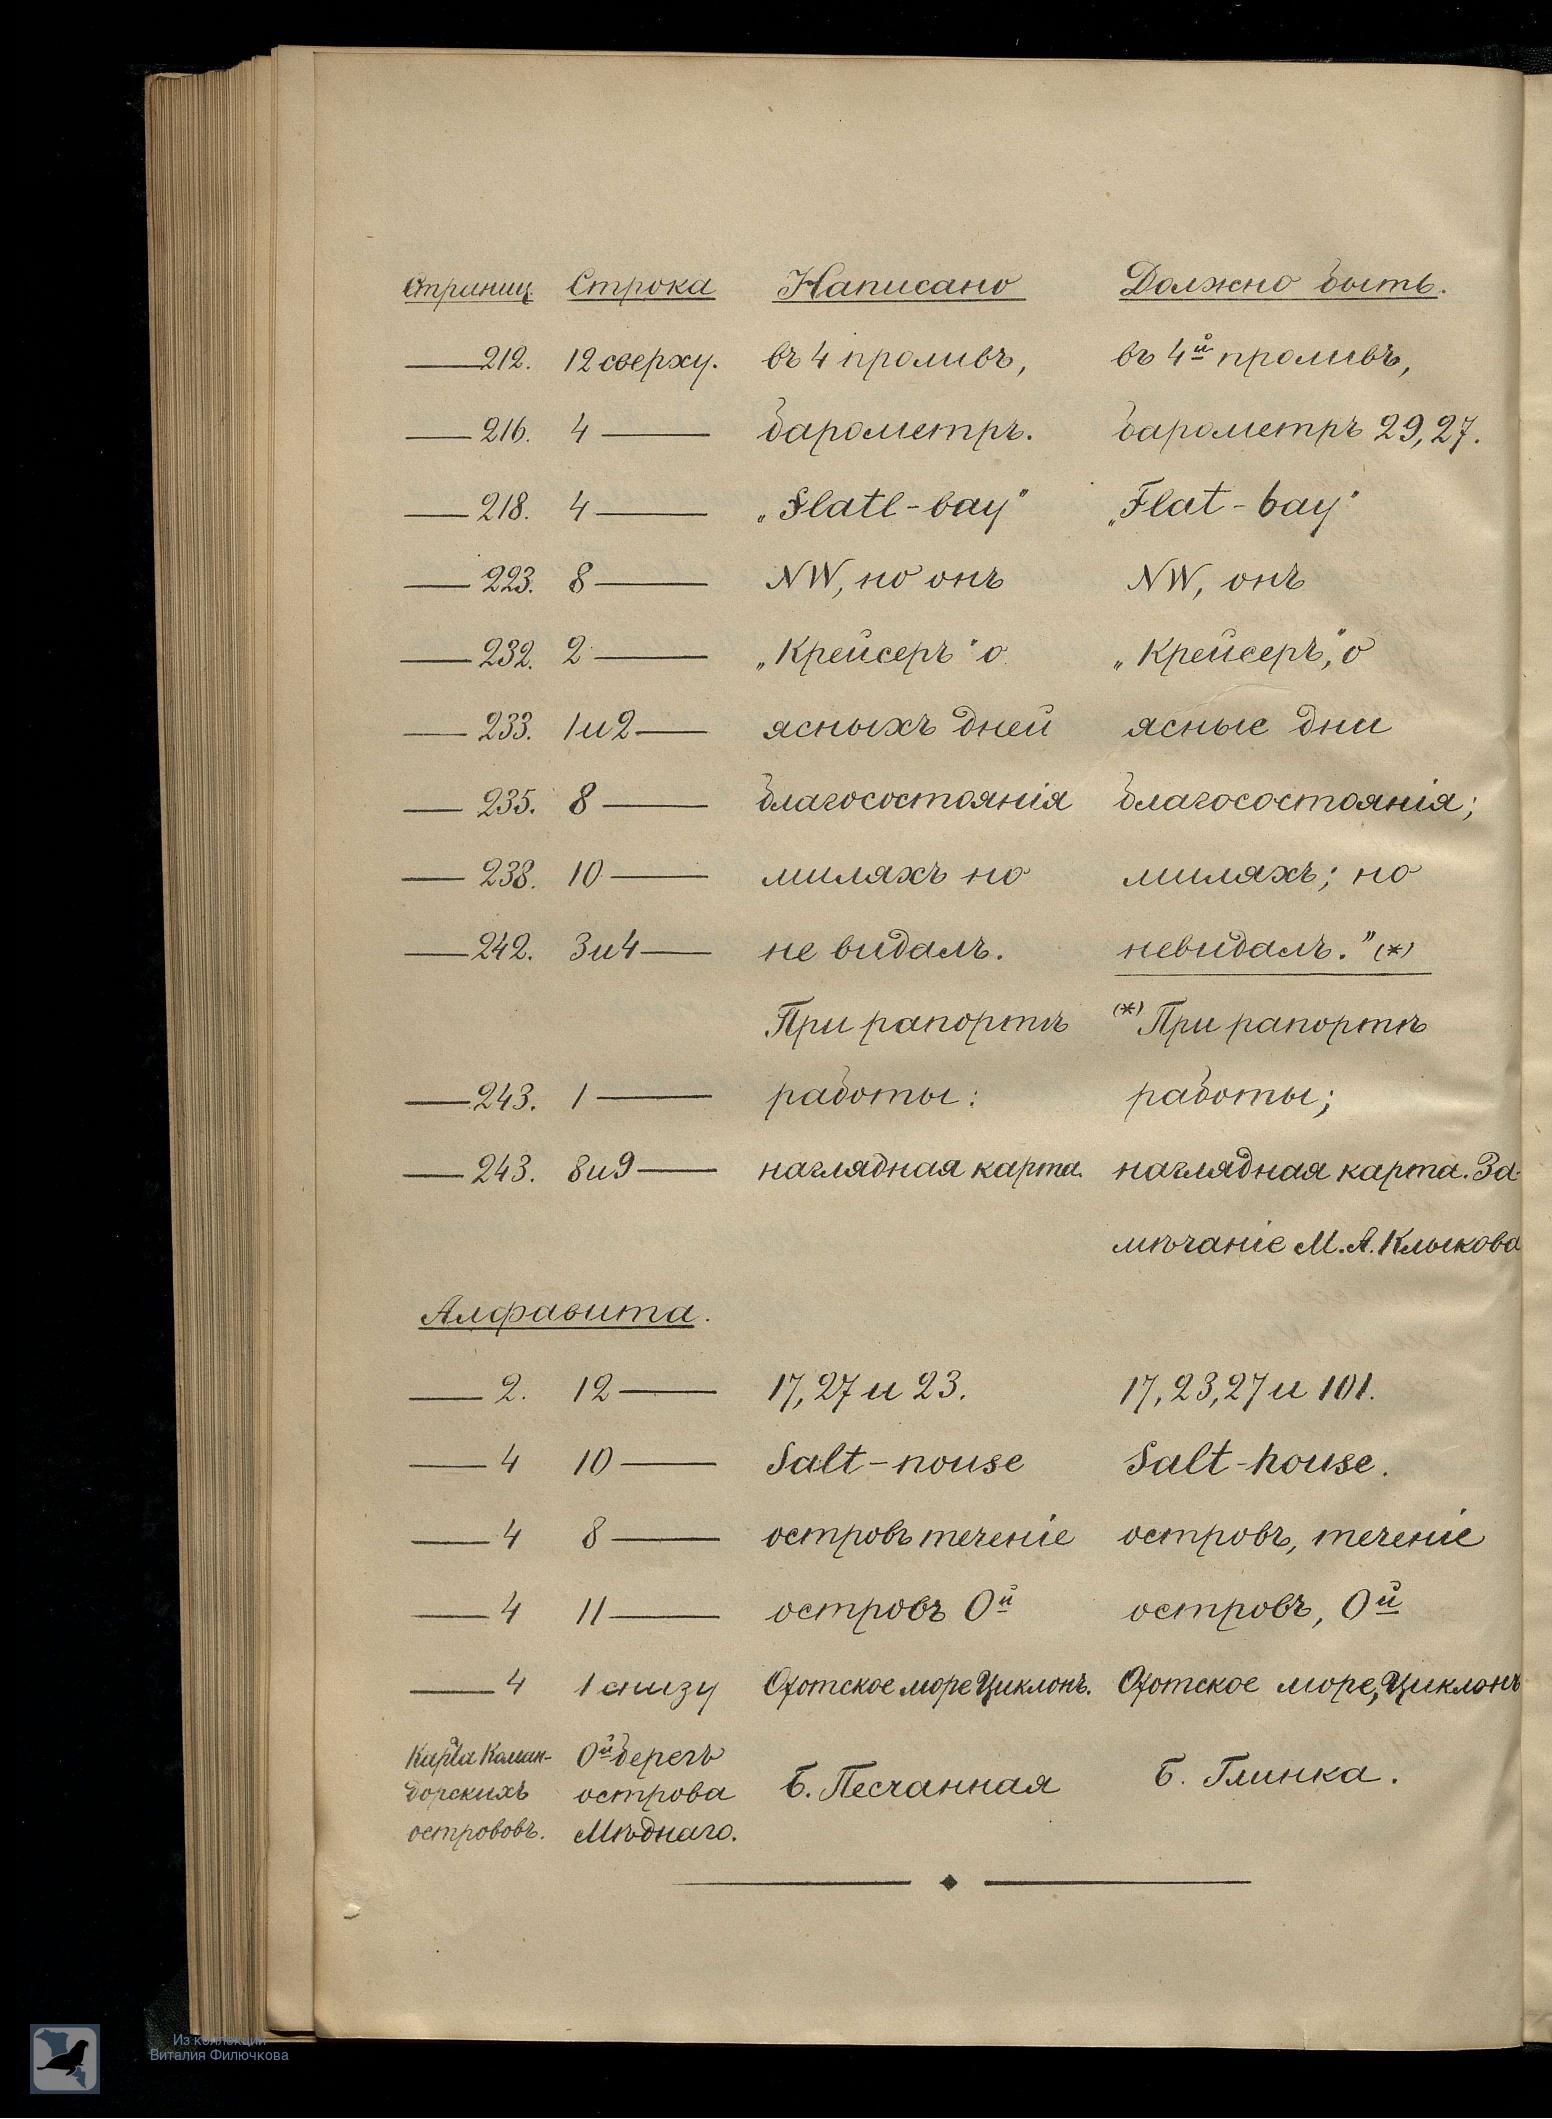 Страниц Строка Написано Должно быть.
—212. 12 сверху. въ 4 проливъ, въ 4й проливъ,
—216. 4 — барометръ. барометръ 29,27.
—218. 4 — „Slatl-bay" „Flat-bay"
—223. 8 — NW, но онъ NW, онъ
—232. 2 — „Крейсеръ" о „Крейсеръ", о
—233. 1 и 2 — ясныхъ дней ясные дни
—235. 8 — благосостоянія благосостоянія;
—238. 10 — миляхъ но миляхъ; но
—242. 3 и 4 — не видалъ. невидалъ." (*)
При рапортѣ (*) При рапортѣ
—243. 1 — работы: работы;
—243. 8 и 9 — наглядная карта. наглядная карта. За-
мѣчаніе М. А. Клыкова
Алфавита.
—2. 12 — 17, 27 и 23. 17, 23, 27 и 101.
—4 10 — Salt-nouse Salt-house.
—4 8 — островъ теченіе островъ, теченіе
—4 11 — островъ Ой островъ, Ой
—4 1 снизу Охотское море Циклонъ. Охотское море, Циклонъ
Карта Коман- Ой берегъ
дорскихъ острова Б. Песчанная Б. Глинка.
острововъ. Мѣднаго.
Из коллекции
Виталия Филючкова